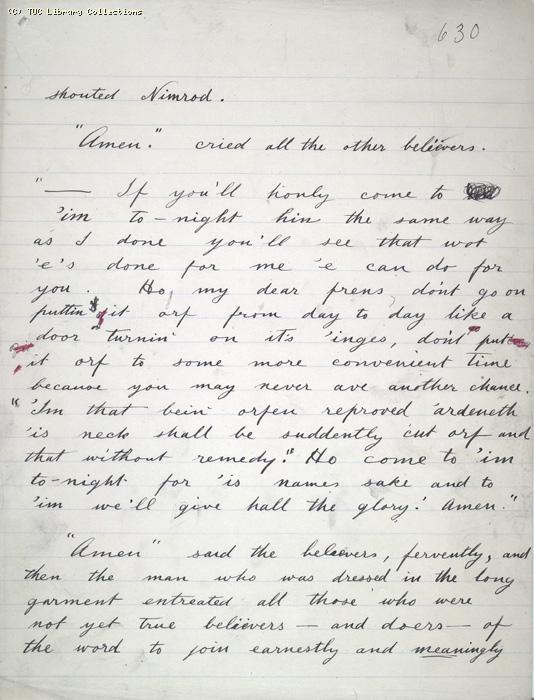 (C) TUC Library Collections
630
shouted Nimrod.
"Amen." cried all the other believers.
"—— If you'll honly come to
'im to-night hin the same way
as I done you'll see that wot
'e's done for me 'e can do for
you. Ho, my dear frens, don't go on
puttin' it orf from day to day like a
door turnin' on its 'inges, don't put
it orf to some more convenient time
because you may never ave another chance.
"'Im that bein' orfen reproved 'ardeneth
'is neck shall be suddenly cut orf and
that without remedy." Ho come to 'im
to-night for 'is names sake and to
'im we'll give hall the glory! Amen."
"Amen" said the believers, fervently, and
then the man who was dressed in the long
garment entreated all those who were
not yet true believers — and doers — of
the word to join earnestly and meaningly